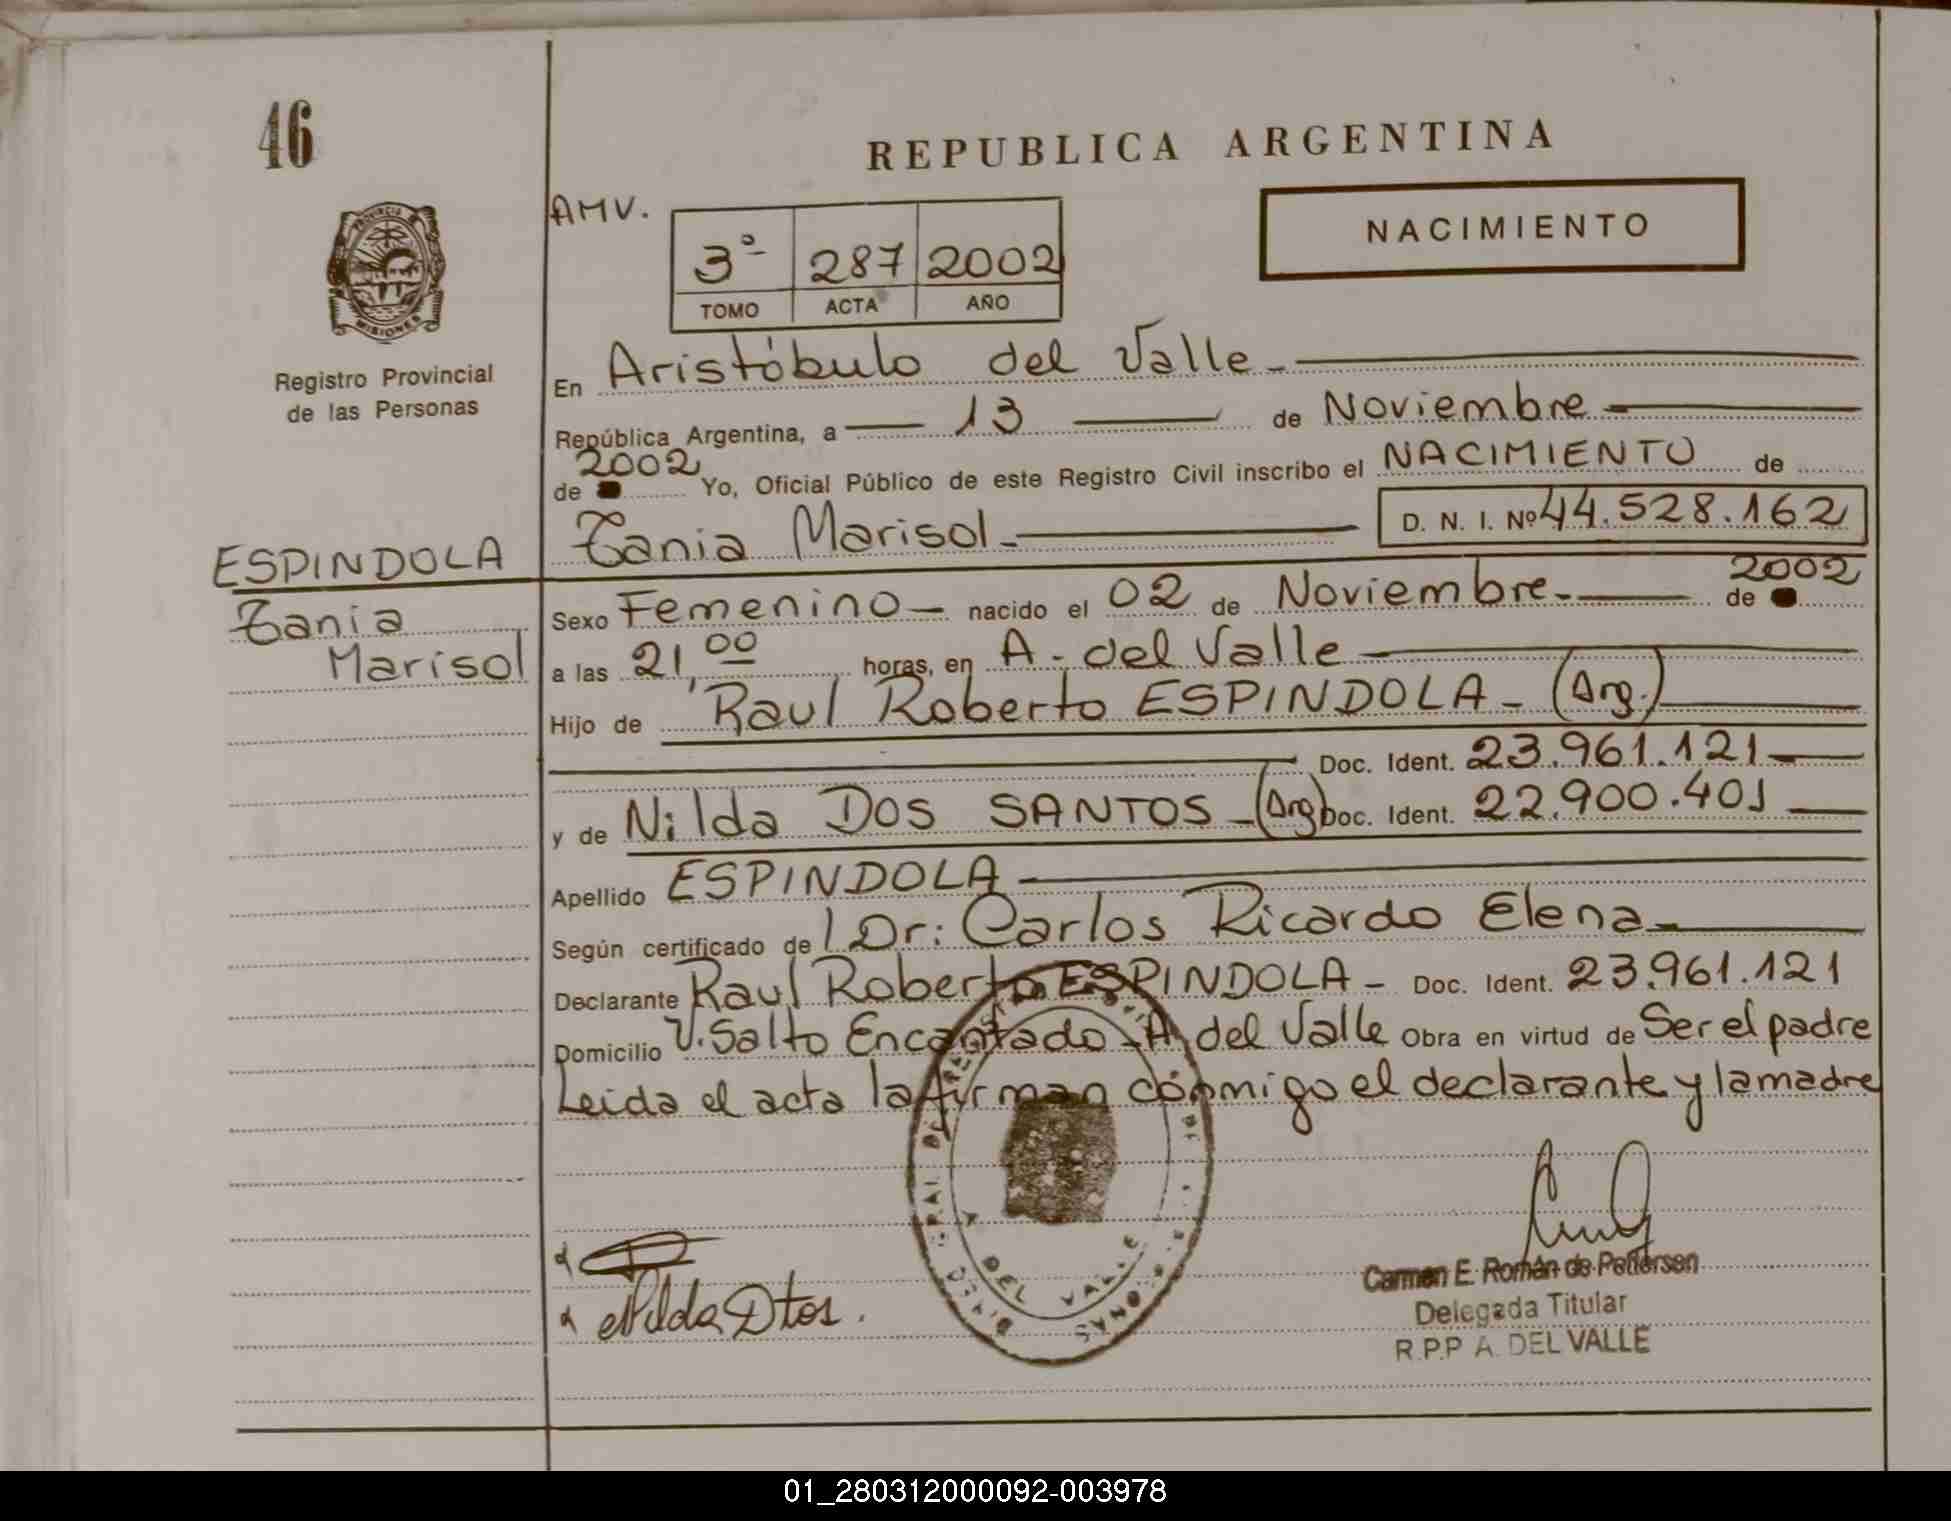 46
REPUBLICA ARGENTINA
AMV.
NACIMIENTO
3º 287 2002
TOMO ACTA AÑO
PROVINCIA
MISIONES
Registro Provincial
de las Personas
En Aristóbulo del Valle.-
República Argentina, a 13 de Noviembre
2002
de Yo, Oficial Público de este Registro Civil inscribo el NACIMIENTO de
Tania Marisol.- D. N. I. Nº 44.528.162
ESPINDOLA
Tania
Marisol
2002
Sexo Femenino- nacido el 02 de Noviembre.- de
a las 21,00 horas, en A. del Valle
Hijo de Raul Roberto ESPINDOLA - (Arg.)
Doc. Ident. 23.961.121-
y de Nilda DOS SANTOS - (Arg) Doc. Ident. 22.900.401
Apellido ESPINDOLA
Según certificado de l Dr: Carlos Ricardo Elena-
Declarante Raul Roberto ESPINDOLA - Doc. Ident. 23.961.121
Domicilio V. Salto Encantado - A. del Valle Obra en virtud de Ser el padre
Leida el acta la firman conmigo el declarante y la madre
A DEL VALLE
Nilda Dtos.
Carmen E. Román de Pettersen
Delegada Titular
R.P.P A. DEL VALLE
01_280312000092-003978